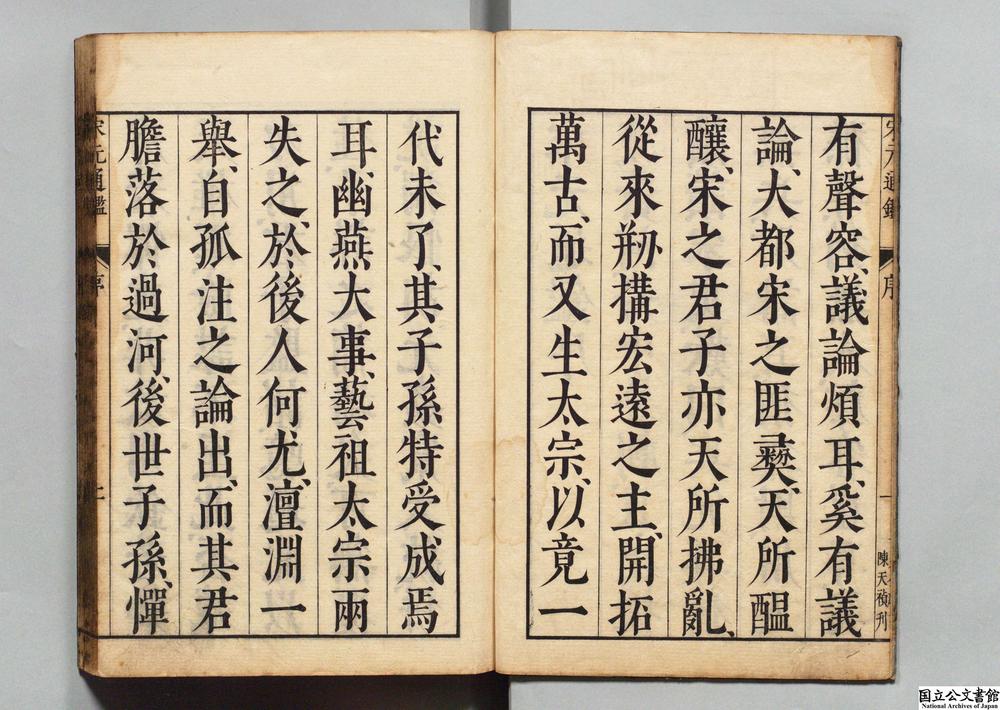 宋元通鑑 序 一 陳天禎刊
有聲容、議論煩耳、奚有議
論、大都宋之匪彛、天所醞
釀、宋之君子亦天所拂亂、
從來剏搆宏遠之主、開拓
萬古、而又生太宗、以竟一
代未了、其子孫特受成焉
耳、幽燕大事、藝祖太宗兩
失之、於後人何尤、澶淵一
舉、自孤注之論出、而其君
膽落於過河、後世子孫、憚
宋元通鑑 序 二
国立公文書館
National Archives of Japan